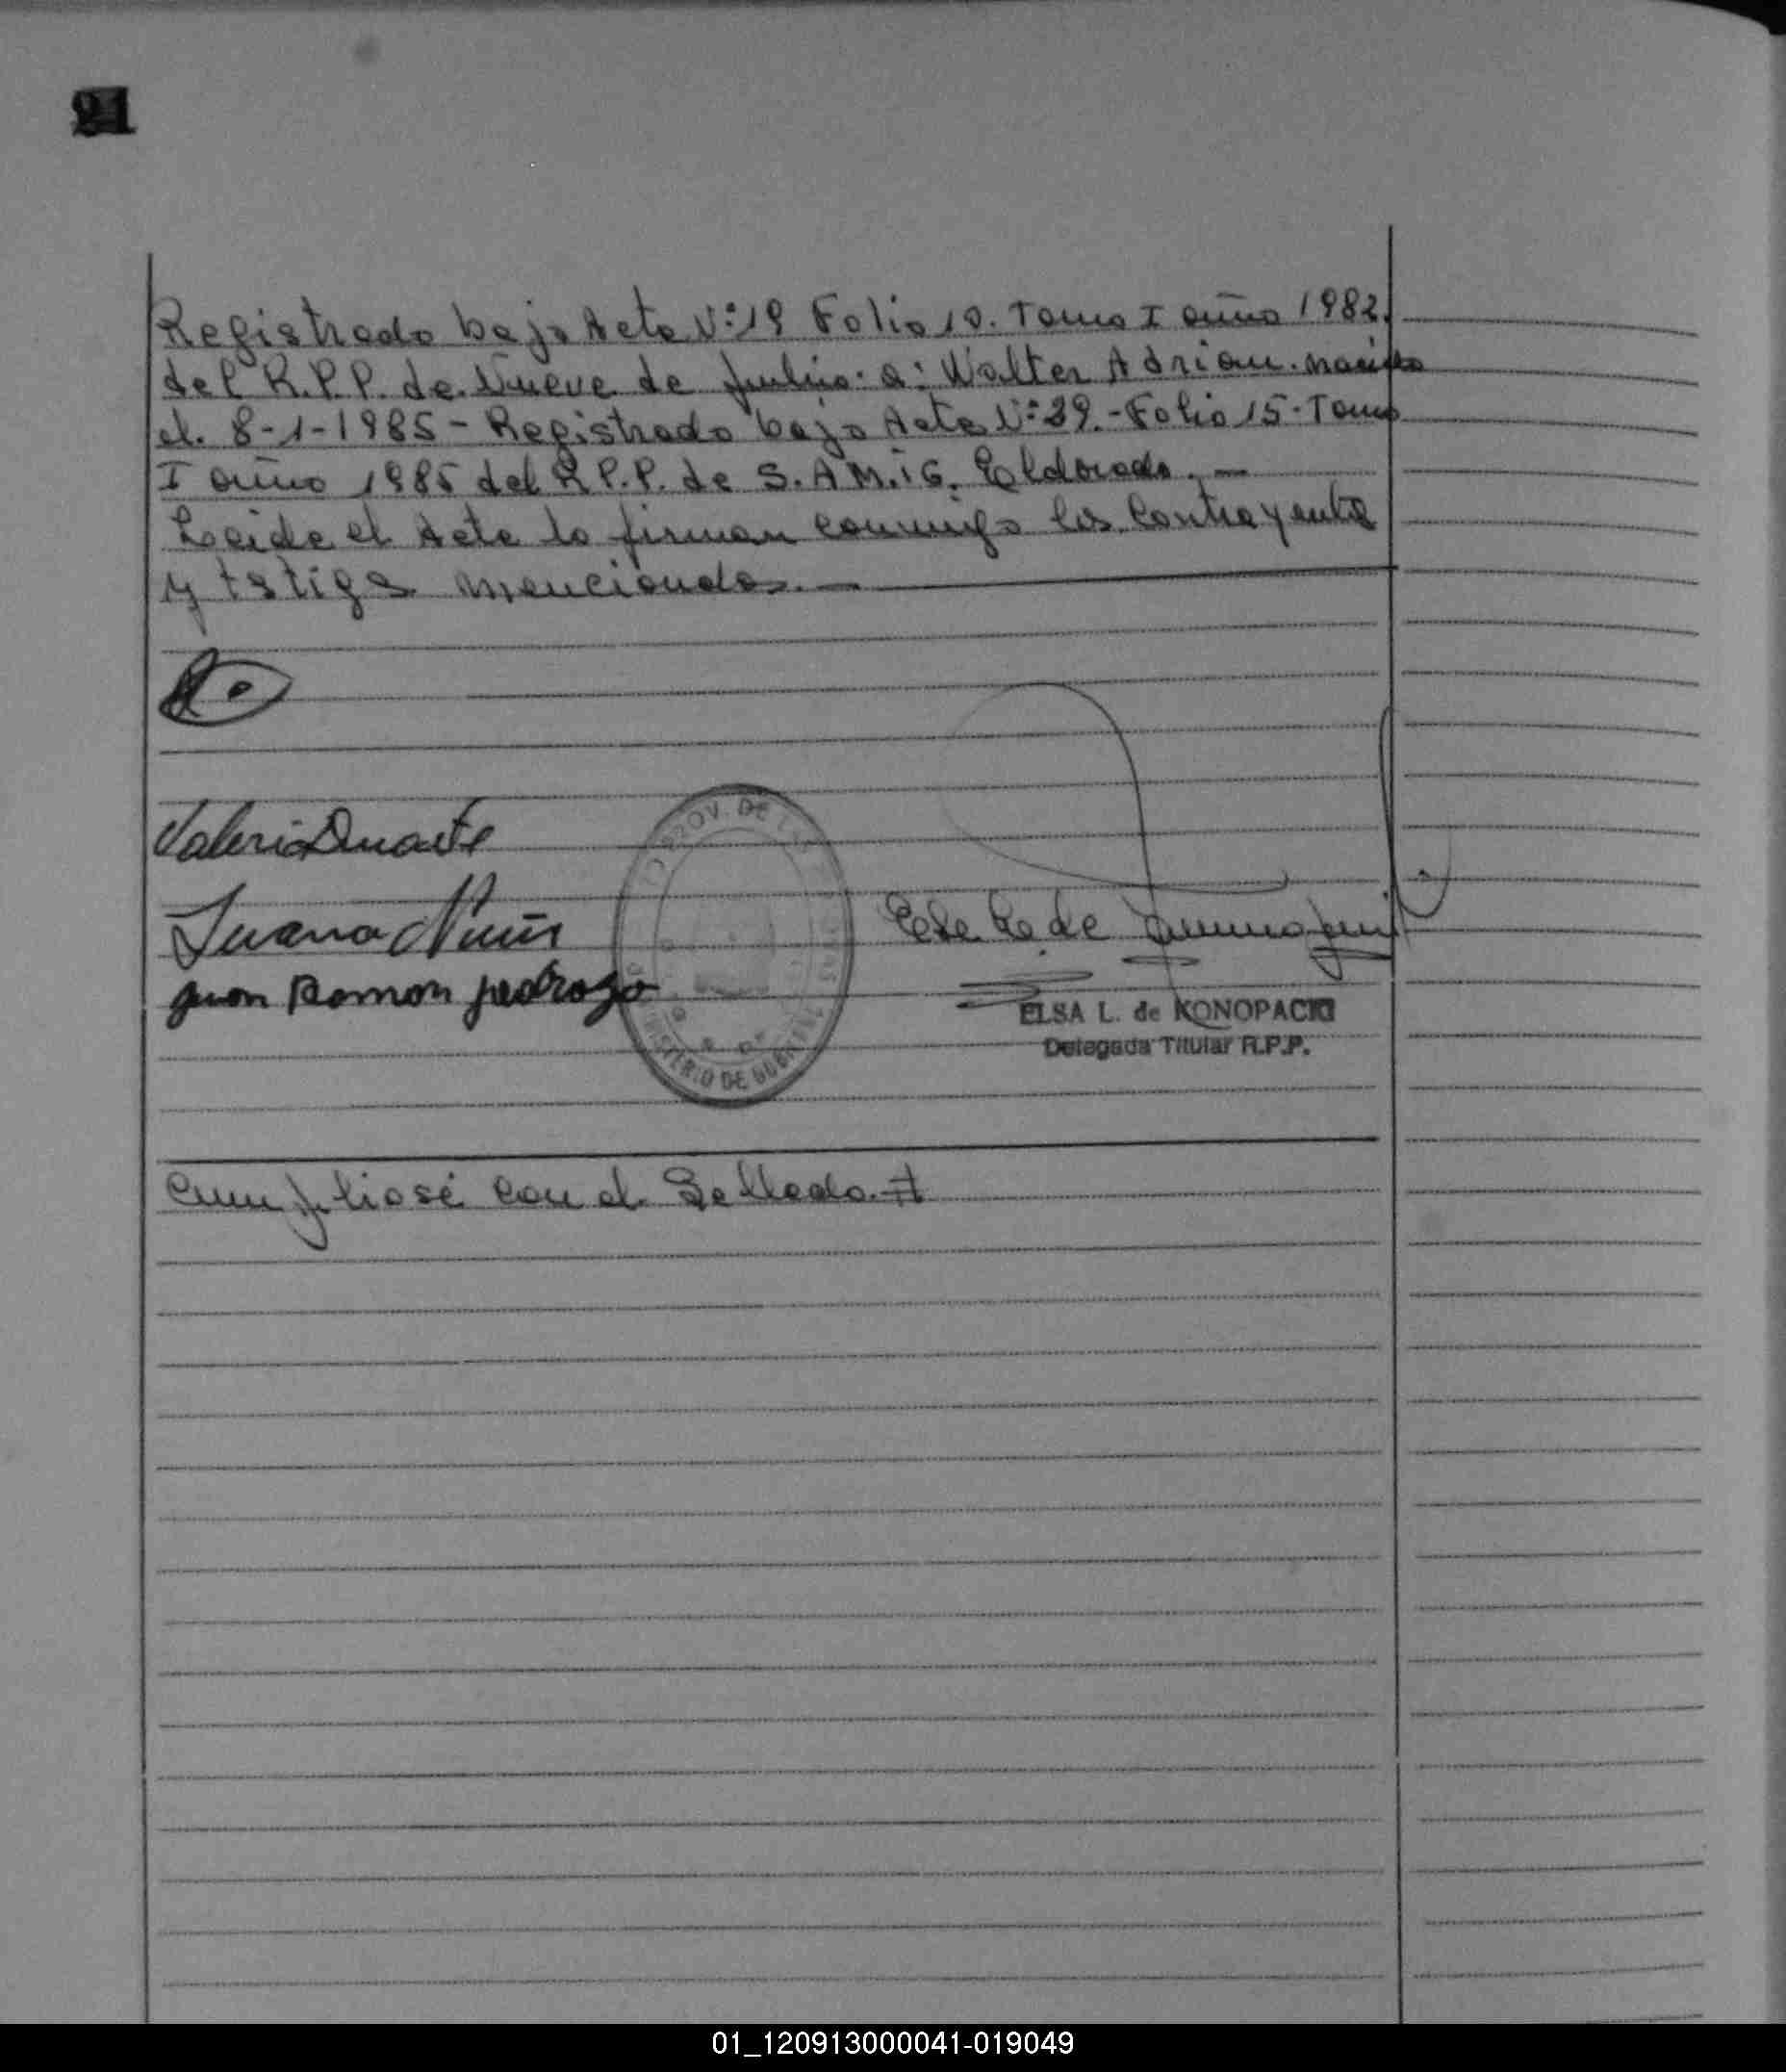 21
Registrado bajo Acta Nº:19 Folio 10. Tomo I año 1982.
del R.P.P. de Nueve de Julio. a: Walter Adrian. nacido
el. 8-1-1985 - Registrado bajo Acta Nº:29.- Folio 15. Tomo
I año 1985 del R.P.P. de S.A.M.i G. Eldorado. —
Leida el Acta la firman conmigo los Contrayentes
y testigos mencionados. —
Valerio Duarte
Juana
juan Ramon pedrozo
PROV. DE
MINISTERIO DE
ELSA L. de KONOPACKI
Delegada Titular R.P.P.
Cumpliose con el Sellado.
01_120913000041-019049